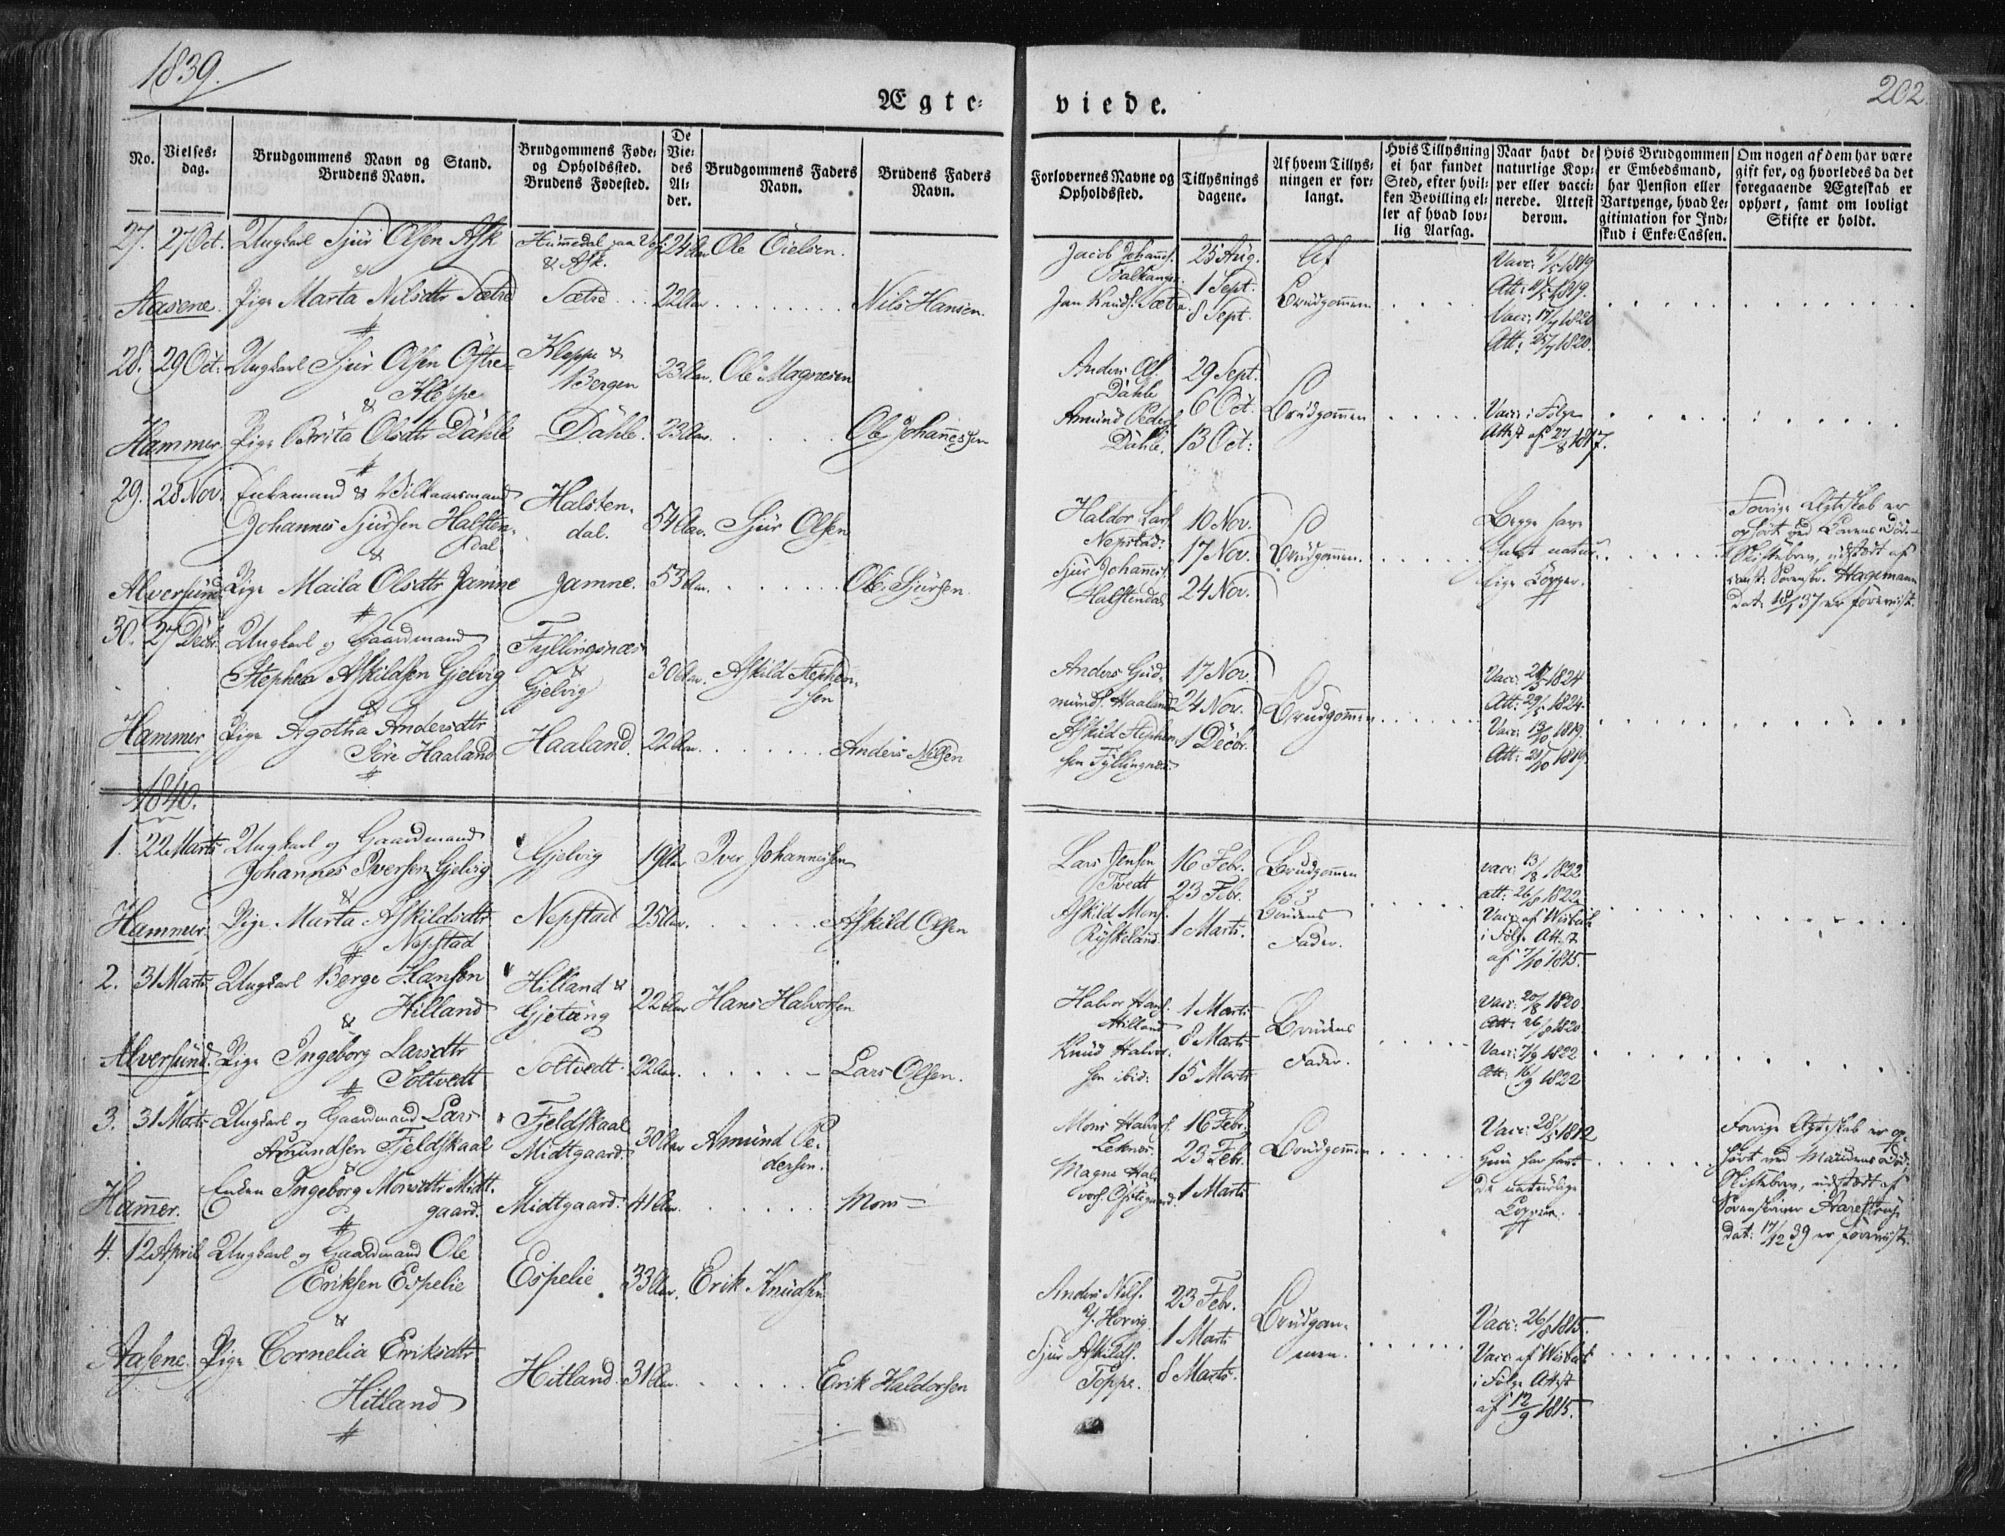 1839.
202
Ægte-
viede.
No.
Vielses-
dag.
Brudgommens Navn og Stand.
Brudens Navn.
Brudgommens Føde-
og Opholdssted.
Brudens Fødested.
De
Vie-
des
Al-
der.
Brudgommens Faders
Navn.
Brudens Faders
Navn.
Forlovernes Navne og
Opholdssted.
Tillysnings
dagene.
Af hvem Tillys-
ningen er for-
langt.
Hvis Tillysning
ei har fundet
Sted, efter hvil-
ken Bevilling el-
ler af hvad lov-
lig Aarsag.
Naar havt de
naturlige Kop-
per eller vacci-
nerede. Attest
derom.
Hvis Brudgommen
er Embedsmand,
har Pension eller
Vartpenge, hvad Le-
gitimation for Ind-
skud i Enke-Cassen.
Om nogen af dem har være
gift før, og hvorledes da det
foregaaende Ægteskab er
ophørt, samt om lovligt
Skifte er holdt.
27. 27 Oct. Ungkarl Sjur Olsen Ask
&
Aasene. Pige Marta Nilsdtr Sætre
& Ask.
Sætre
24 Aar
22 Aar
Ole
Nils Hansen.
Jacob Johans.
Jan Knuds. Sætre
25 Aug.
1 Sept.
8 Sept.
Af
Brudgommen
Vacc: 4/5 1819
Att: 1819.
Vacc: 17/7 1820
Att: 25/7 1820.
28. 29 Oct. Ungkarl Sjur Olsen Øftre-
Kleppe
&
Hammer. Pige Brita Olsdtr Dahle
Kleppe &
Bergen
Dahle.
23 Aar.
23 Aar.
Ole Magnesen
Ole Johannessen
Anders Ol.
Dahle
Amund Peders.
Dahle.
29 Sept.
6 Oct.
13 Oct:
Brudgommen
Vacc: i Følge
Attest af 27/8 1817.
29. 28 Nov. Enkemand & Vilkaarsmand
Johannes Sjursen Halsten-
dal
&
Alversund. Pige Maila Olsdtr Jamne
Halsten-
dal.
Jamne.
54 Aar.
53 Aar.
Sjur Olsen
Ole Sjursen.
Haldor Lars.
Nepstad.
Sjur Johannes.
Halstendal
10 Nov.
17 Nov.
24 Nov.
Brudgommen.
Begge have
havt natur-
lige Kopper.
Forrige Ægteskab er
ophørt ved Konens Død-
Skiftebrev, udstædt af
const. Sorenskr. Hagemann
dat. 18/1 37 er forevist.
30. 27 Decbr. Ungkarl og Gaardmand
Stephen Askildsen Gjelvig
&
Hammer Pige Agatha Andersdtr
Søre Haaland
Fyllingsnæs
&
Gjelvig
Haaland.
30 Aar.
22 Aar.
Askild Stephen-
sen
Anders Nilsen
Anders Gud-
munds. Haaland
Askild Stephen-
sen Fyllingnæs.
17 Nov.
24 Nov.
1 Decbr.
Brudgommen
Vacc: 1824
Att: 29/5 1824.
Vacc: 13/10 1819.
Att: 21/10 1819.
1840.
1. 22 Marts Ungkarl og Gaardmand
Johannes Iversen Gjelvig
&
Hammer. Pige Marta Askildsdtr
Nepstad
Gjelvig
Nepstad
19 Aar
25 Aar.
Iver Johannessen
Askild Olsen
Lars Jensen
Tvedt
Askild Mons.
Ryskeland.
16 Febr.
23 Febr.
1 Marts.
Brudgommen
og
Brudens
Fader.
vacc: 13/8 1822
att: 26/8 1822
Vacc: af Wisbech
i Følge Attest
af 7/10 1815.
2. 31 Marts Ungkarl Berge Hansen
Hilland
&
Alversund. Pige Ingeborg Larsdtr
Toltvedt
Hilland &
Gjetang
Toltvedt.
22 Aar
22 Aar.
Hans Halvorsen
Lars Olsen.
Halvor Hans.
Hilland
Knud Halvor-
sen ibid:
1 Marts
8 Marts
15 Marts
Brudens
Fader.
vacc: 20/8 1820
Att: 26/8 1820
Vacc: 7/9 1822
Att: 16/9 1822
3. 31 Marts Ungkarl og Gaardmand Lars
Amundsen Fjeldskaal
&
Hammer. Enken Ingeborg Monsdtr Midt-
gaard.
Fjeldskaal
Midtgaard.
Midtgaard.
30 Aar
41 Aar.
Amund Pe-
dersen.
Mons —
Mons Halvors.
Leknes.
Magne Hal-
vors. Øftigaard.
16 Febr.
23 Febr.
1 Marts
Brudgommen
Vacc: 28/5 1812
Hun har havt
de naturlige
Kopper.
Forrige Ægteskab er op-
hørt ved Mandens Død.
Skiftebrev, udstædt af
Sorenskriver
dat: 17/12 39 er forevist.
4. 12 April Ungkarl og Gaardmand Ole
Eriksen Espelie
&
Aasene. Pige Cornelia Eriksdtr
Hitland
Espelie
Hitland.
33 Aar.
31 Aar.
Erik Knudsen
Erik Haldorsen
Anders Nils.
Y. Horvig.
Sjur Askilds.
Toppe.
23 Febr.
1 Marts
8 Marts.
Brudgom-
men.
Vacc: 26/8 1815.
Vacc: af Wisbech
i Følge Attest
af 12/9 1815.